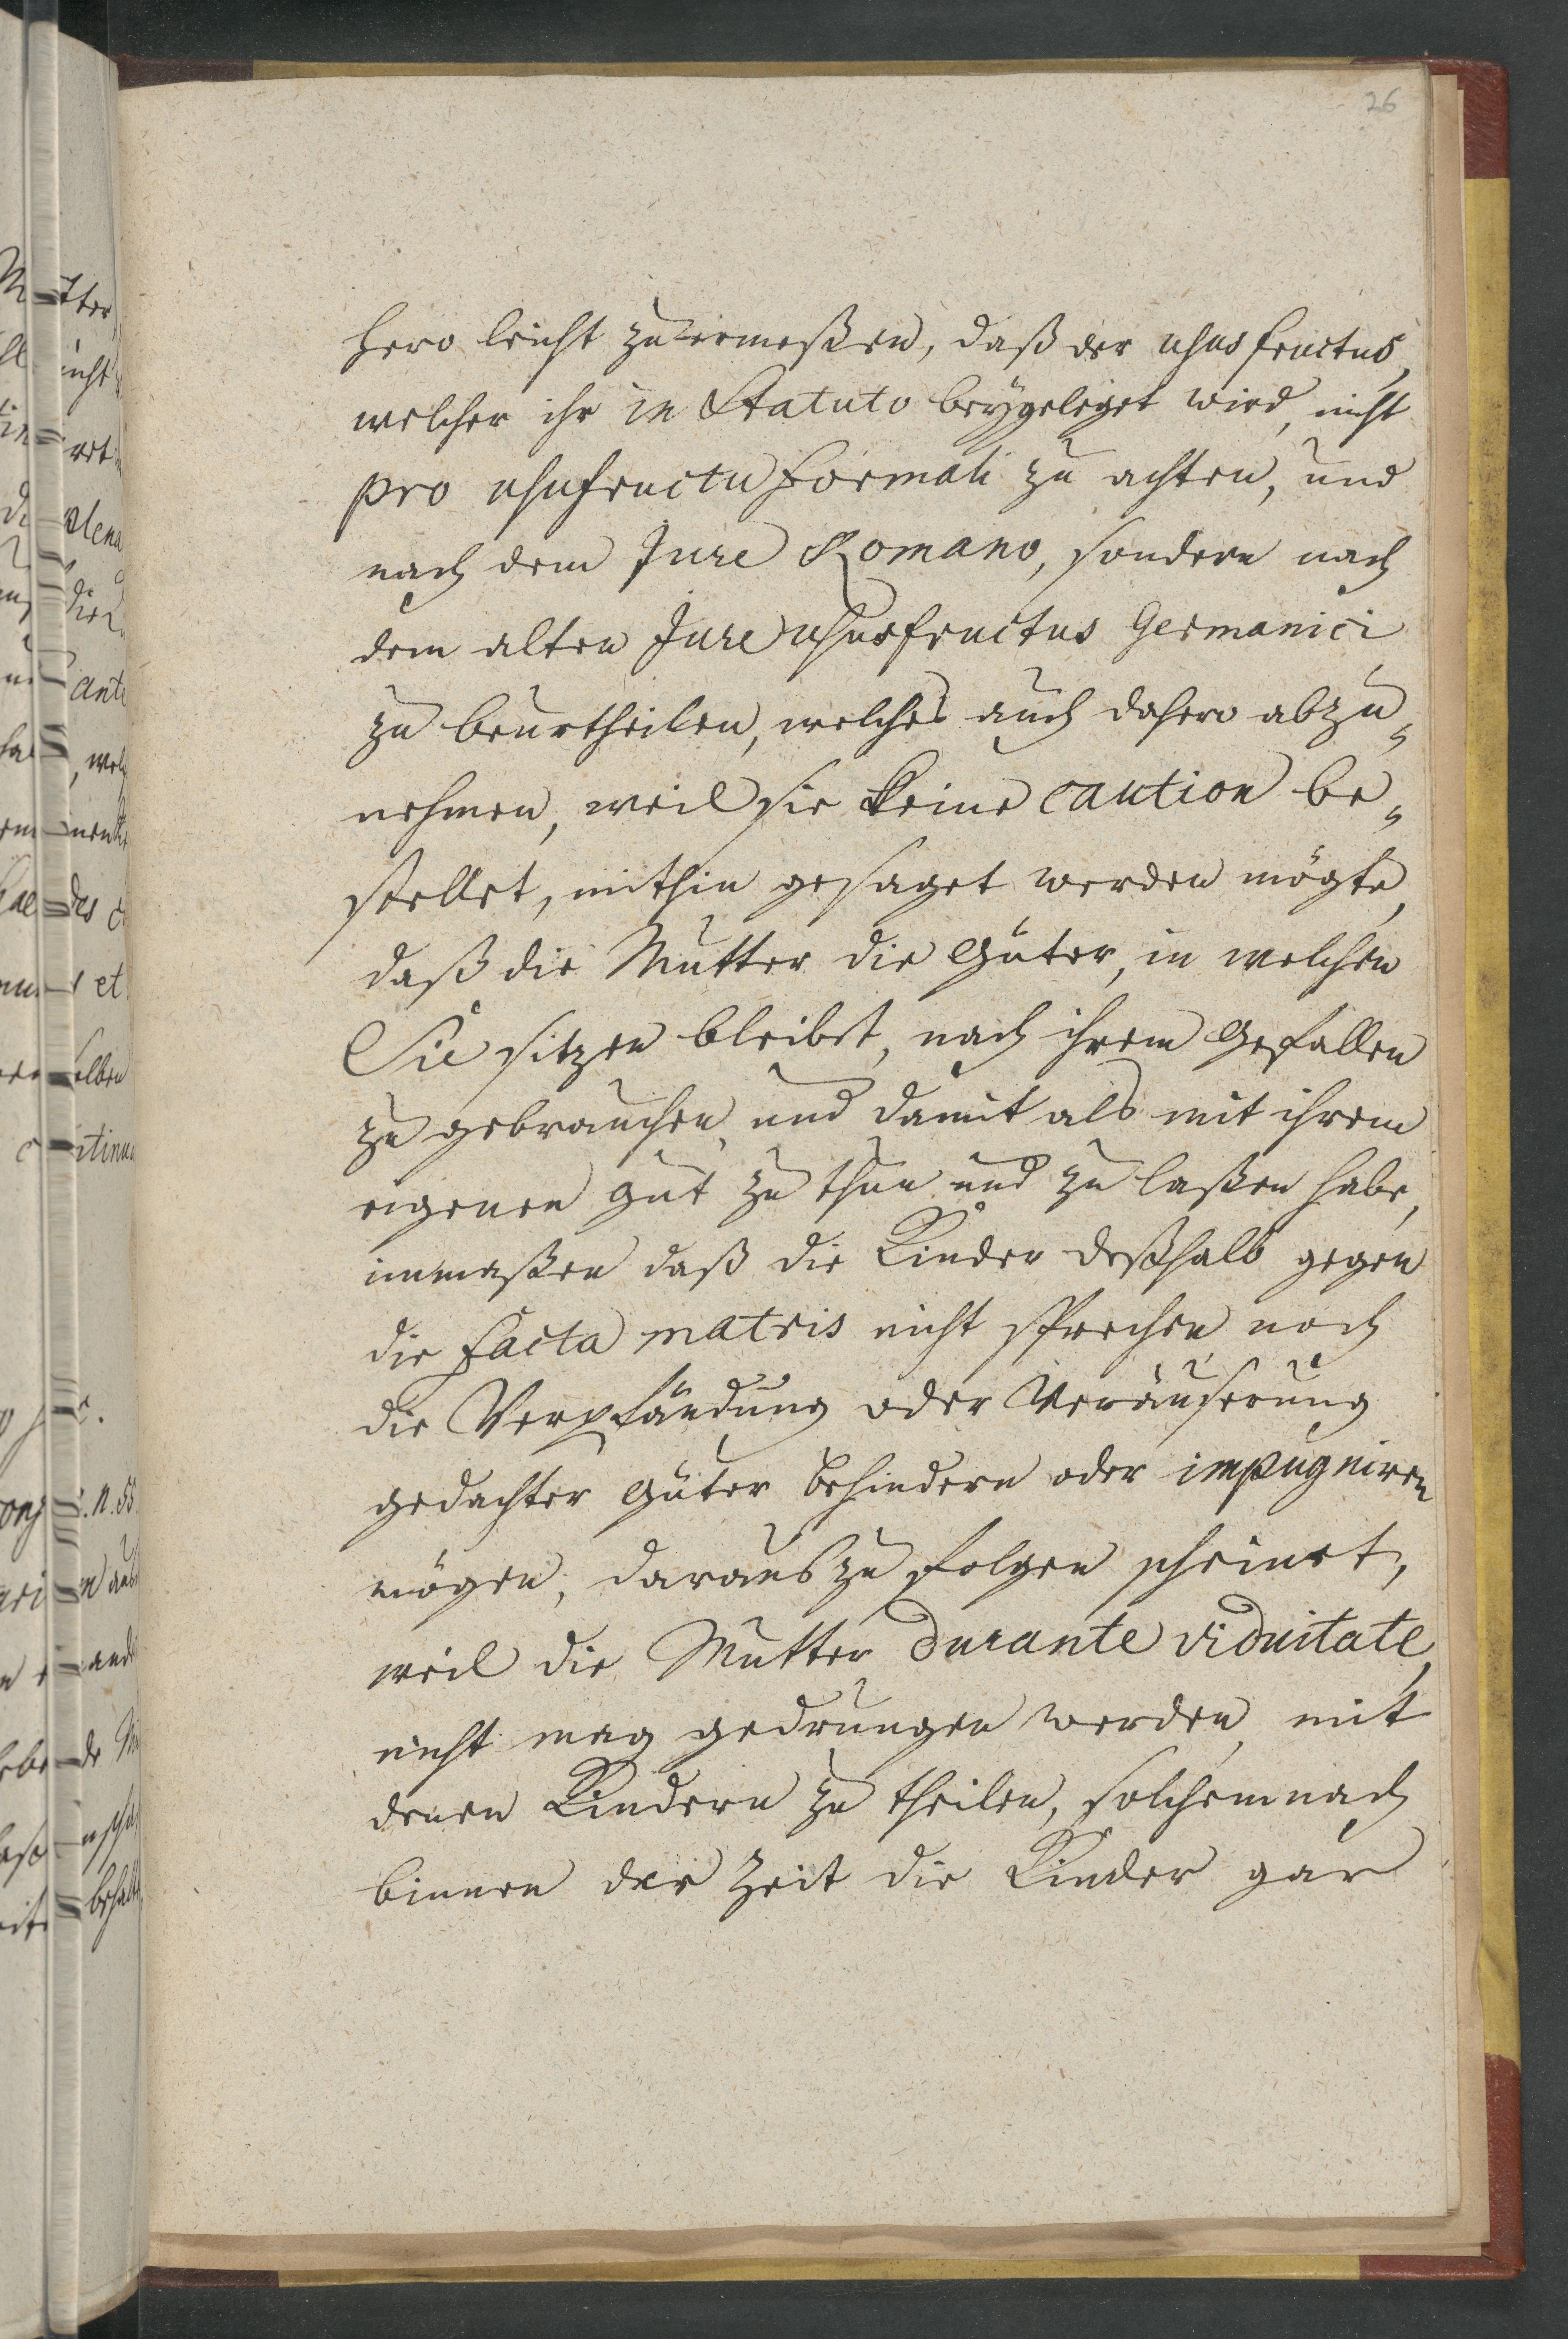 26
hero leicht zu ermeßen, daß der usus fructus,
welcher ihr in Statuto beÿgeleget wird, nicht
pro usufructu formali zu achten, und
nach dem Jure Romano, sondern nach
dem alten Jure ususfructus Germanici
zu beurtheilen, welches auch dahero abzu¬
nehmen, weil sie keine caution be¬
stellet, mithin gesaget werden mögte,
daß die Mutter die Güter, in welchen
Sie sitzen bleibet, nach ihrem Gefallen
zu gebrauchen, und damit als mit ihrem
eigenen Gut zu thun und zu laßen habe,
inmaßen daß die Kinder deßhalb gegen
die facta matris nicht sprechen noch
die Verpfändung oder Veräuserung
gedachter Güter behindern oder impugniren
mögen, daraus zu folgen scheinet,
weil die Mutter durante viduitate,
nicht mag gedrungen werden, mit
denen Kindern zu theilen, solchemnach
binnen der Zeit die Kinder gar